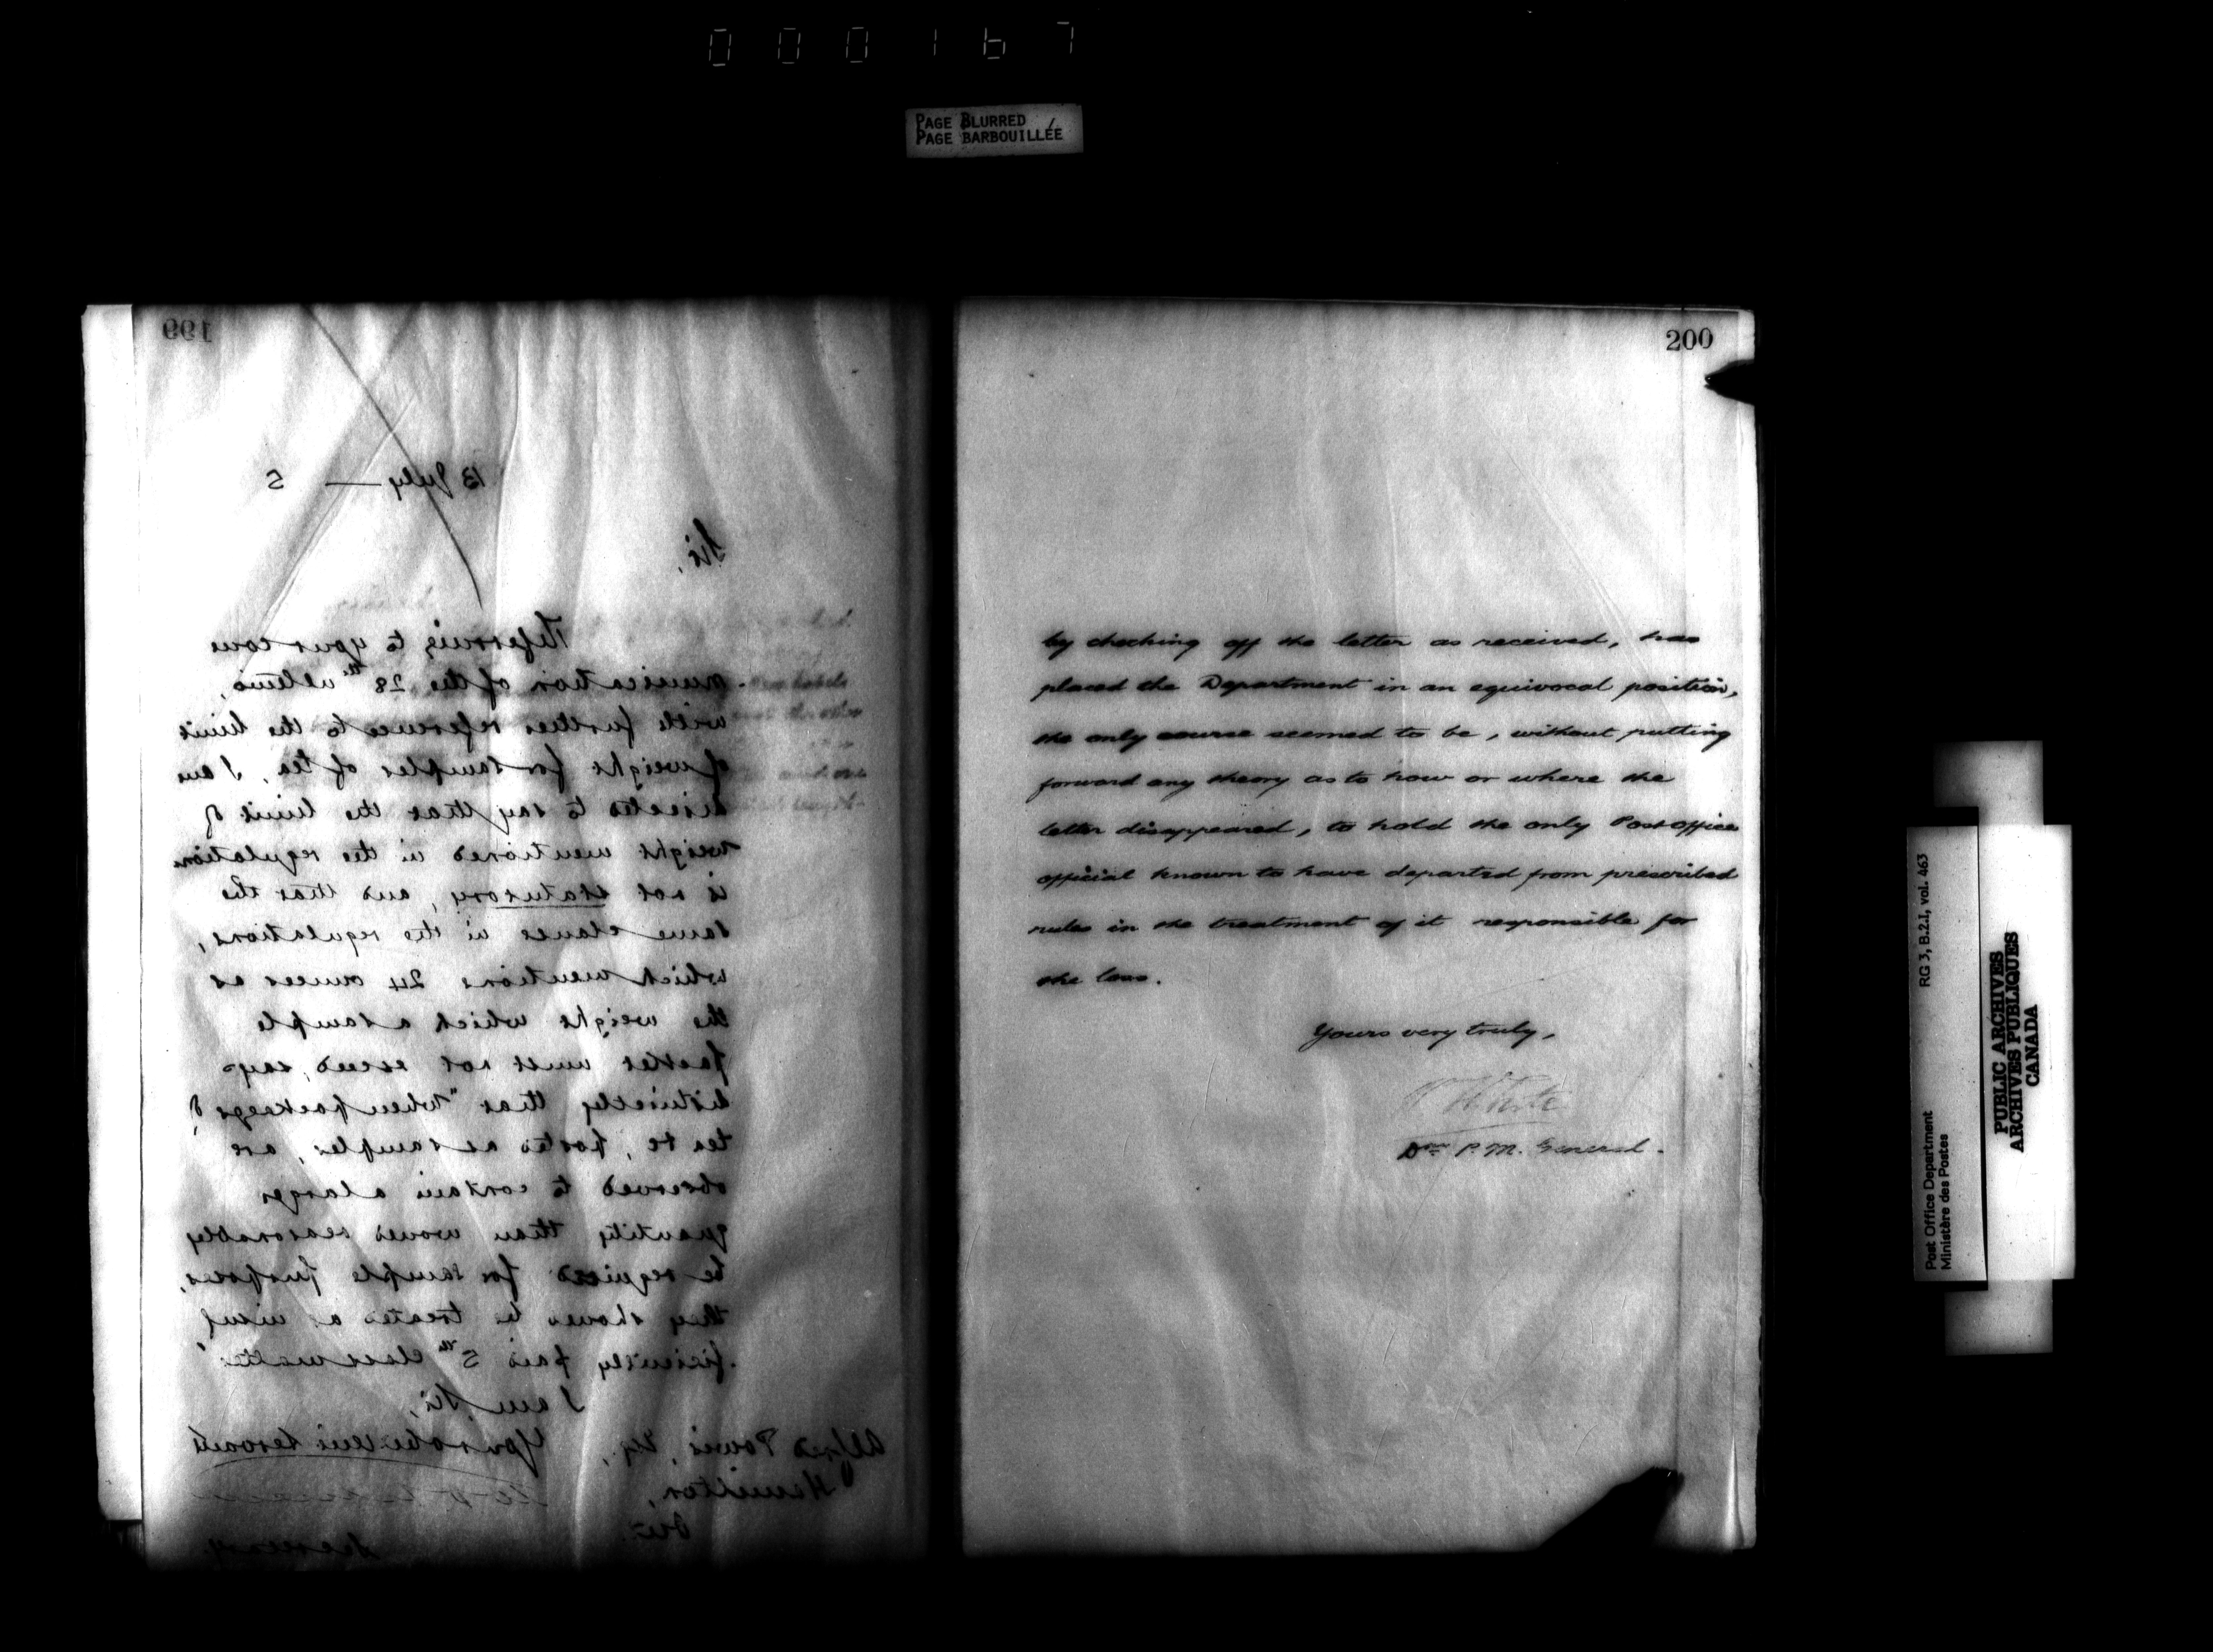 000167
PAGE BLURRED
PAGE BARBOUILLÉE
199
13 July — 5
Sir,
Referring to your com
munication of the 28th ultimo,
with further reference to the limit
of weight for samples of tea, I am
directed to say that the limit of
weight mentioned in the regulation
is not statutory, and that the
same clause in the regulations,
which mentions 24 ounces as
the weight which a sample
packet must not exceed, says
distinctly that "when packages of
tea &c, posted as samples, are
observed to contain a larger
quantity than would reasonably
be required for sample purposes,
they should be treated as insuf
ficiently paid 5th class matter."
I am, Sir,
Your obedient servant
Secretary.
Alfred Powis, Esq.,
Hamilton,
Ont.
200
by checking off the letter as received, has
placed the Department in an equivocal position,
the only course seemed to be, without putting
forward any theory as to how or where the
letter disappeared, to hold the only Post office
official known to have departed from prescribed
rules in the treatment of it responsible for
the loss.
Yours very truly,
W White
Dy P. M. General.
Post Office Department
Ministère des Postes
RG 3, B.2.1, vol. 463
PUBLIC ARCHIVES
ARCHIVES PUBLIQUES
CANADA